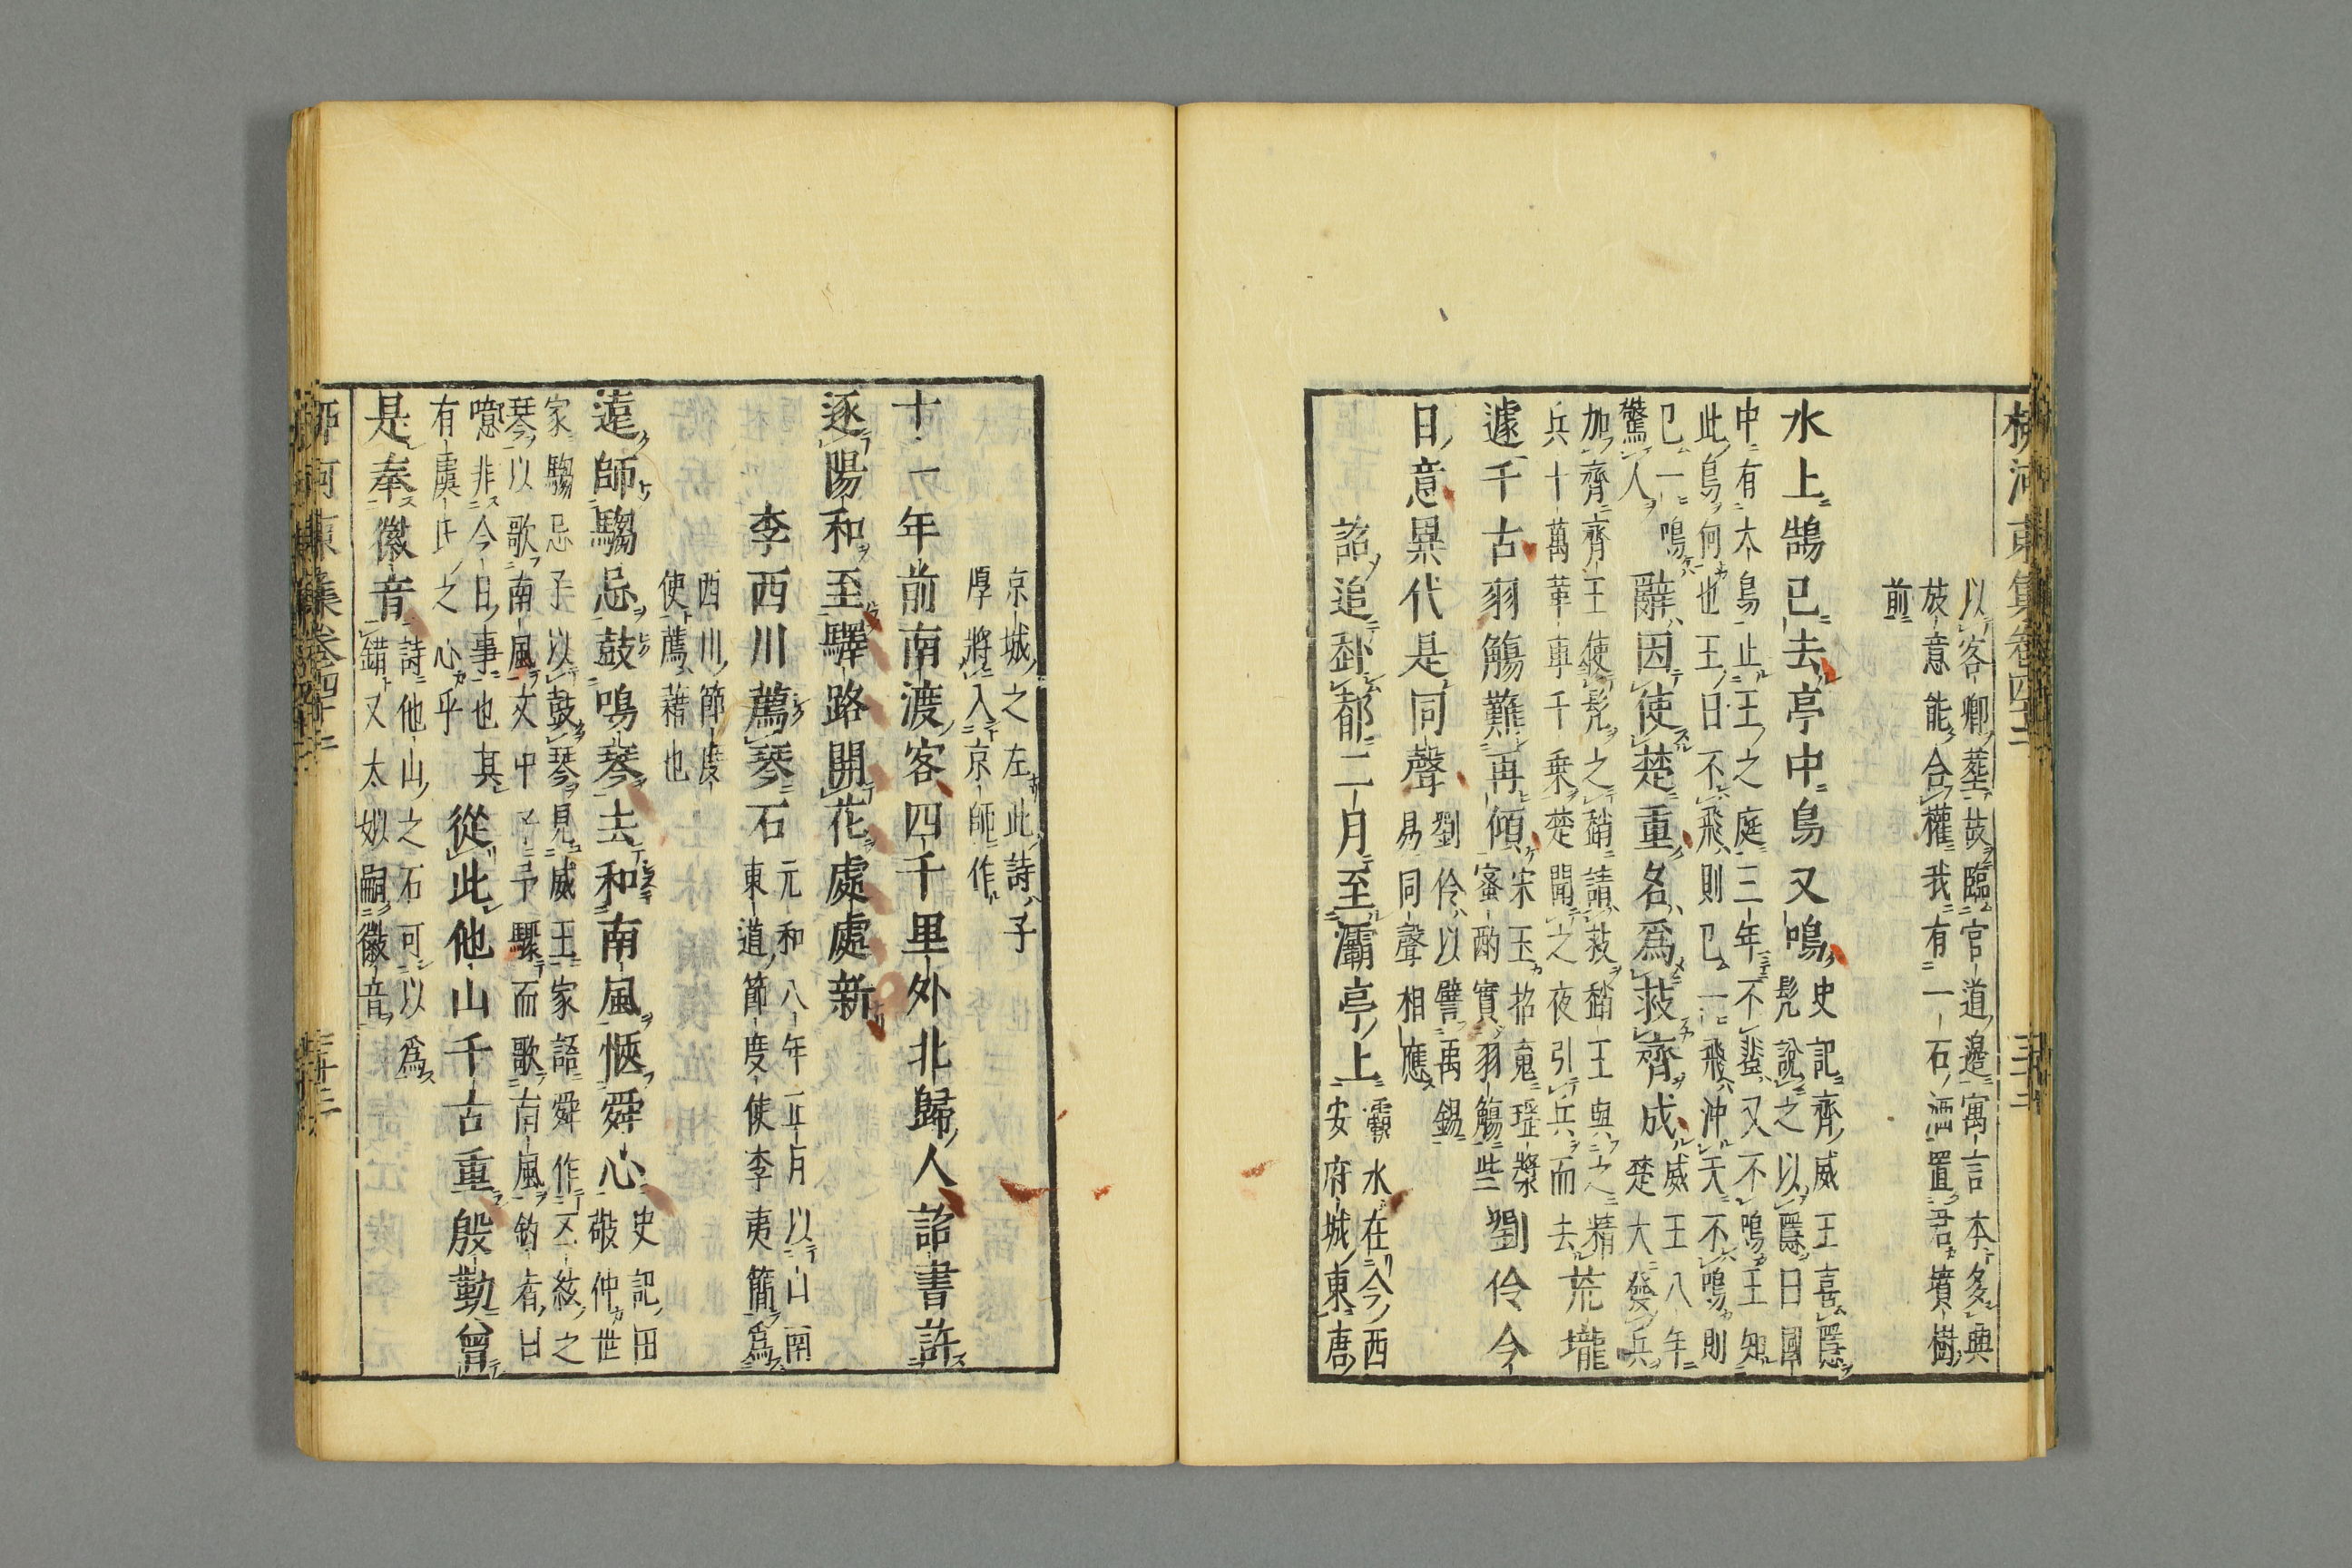 以客卿塟故臨官道邊寓言本多興
放意能合權我有一石酒置君墳樹
前
水上鵠已去亭中鳥又鳴史記齊威王喜隱
髡說之以隱曰國
中有大鳥止王之庭三年不蜚又不鳴王知
此鳥何也王曰不飛則已一飛沖天不鳴則
已一鳴
驚人辭因使楚重名爲救齊成威王八年
楚大發兵
加齊齊王使髡之趙請救趙王與之精
兵十萬革車千乗楚聞之夜引兵而去荒壠
遽千古羽觴難再傾宋玉招䰟瑶漿
蜜酌實羽觴些劉伶今
日意異代是同聲劉伶以譬禹錫
易同聲相應
詔追赴都二月至灞亭上灞水在今西
安府城東唐
京城之左此詩子
厚將入京師作
十一年前南渡客四千里外北歸人詔書許
逐陽和至驛路開花處處新
李西川薦琴石元和八年正月以山南
東道節度使李夷簡爲
西川節度
使薦藉也
遠師騶忌鼓鳴琴去和南風愜舜心史記田
敬仲世
家騶忌子以鼓琴見威王家語舜作五絃之
琴以歌南風文中子予驟而歌南風釣者曰
噫非今日事也其
有虞氏之心乎從此他山千古重殷勤曾
是奉徽音詩他山之石可以爲
錯又太姒嗣徽音
柳河東集卷四十二 三十三